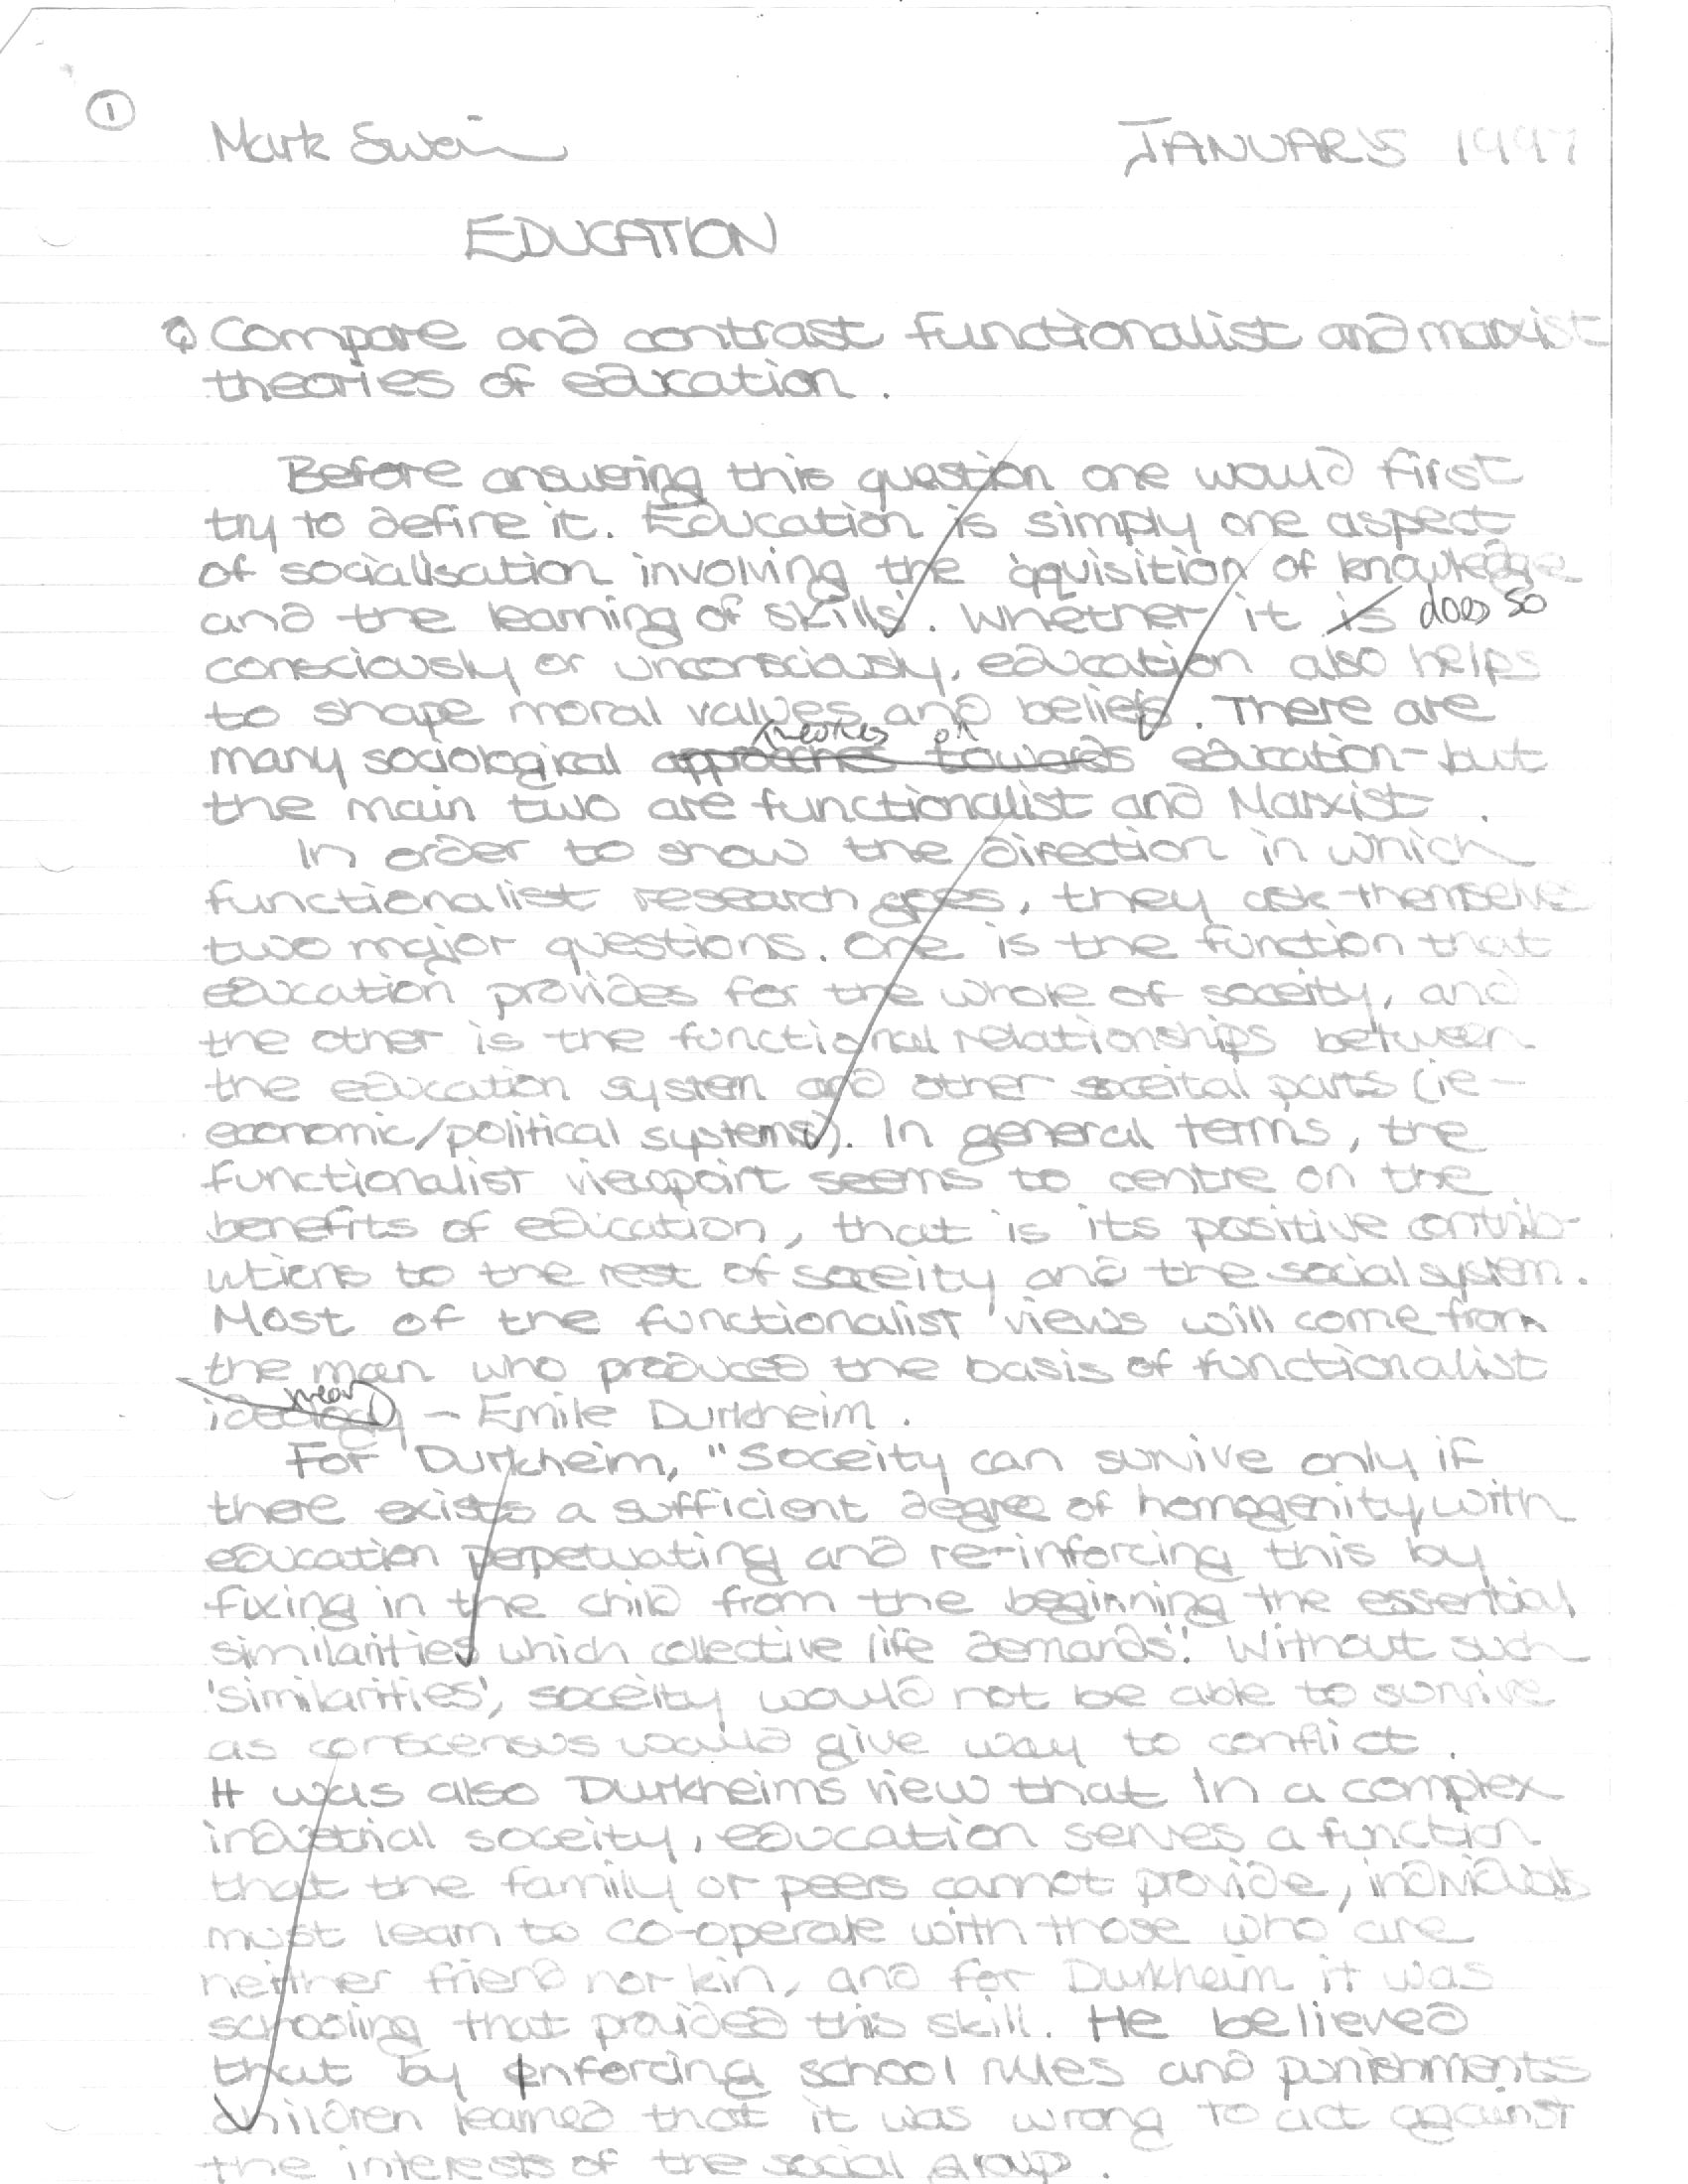 1
Mark Swain
JANUARY 1997
EDUCATION
Q Compare and contrast functionalist and marxist
theories of education.
Before answering this question one would first
try to define it. Education is simply one aspect
of socialisation involving the aquisition of knowledge
and the learning of skills. Whether it is does so
consciously or unconsciously, education also helps
to shape moral values and beliefs. There are
theories on
many sociological approaches towards education - but
the main two are functionalist and Marxist.
In order to show the direction in which
functionalist research goes, they ask themselves
two major questions. One is the function that
education provides for the whole of soceity, and
the other is the functional relationships between
the education system and other soceital parts (ie -
economic/political systems). In general terms, the
functionalist viewpoint seems to centre on the
benefits of education, that is its positive contrib-
utions to the rest of soceity and the social system.
Most of the functionalist views will come from
the man who produced the basis of functionalist
ideology - Emile Durkheim.
For Durkheim, "Soceity can survive only if
there exists a sufficient degree of homogenity, with
education perpetuating and re-inforcing this by
fixing in the child from the beginning the essential
similarities which collective life demands". Without such
'similarities', soceity would not be able to survive
as conscensus would give way to conflict.
It was also Durkheims view that in a complex
industrial soceity, education serves a function
that the family or peers cannot provide, individuals
must learn to co-operate with those who are
neither friend nor kin, and for Durkheim it was
schooling that provided this skill. He believed
that by enforcing school rules and punishments
children learned that it was wrong to act against
the interests of the social group.